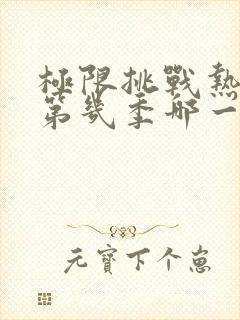 極限挑戰熱
第幾季哪一
元寶下个崽